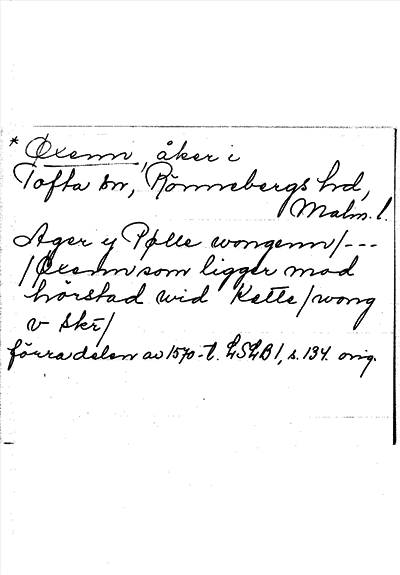 * Øxenn, åker i
Tofta sn, Rönnebergs hd,
Malm. l.
Ager y Pølle wongenn/---
/Øxenn som ligger mod
hörstad wid Kelle/wong
v Skr/
förra delen av 1570-t. LSLB1, s. 134. orig.